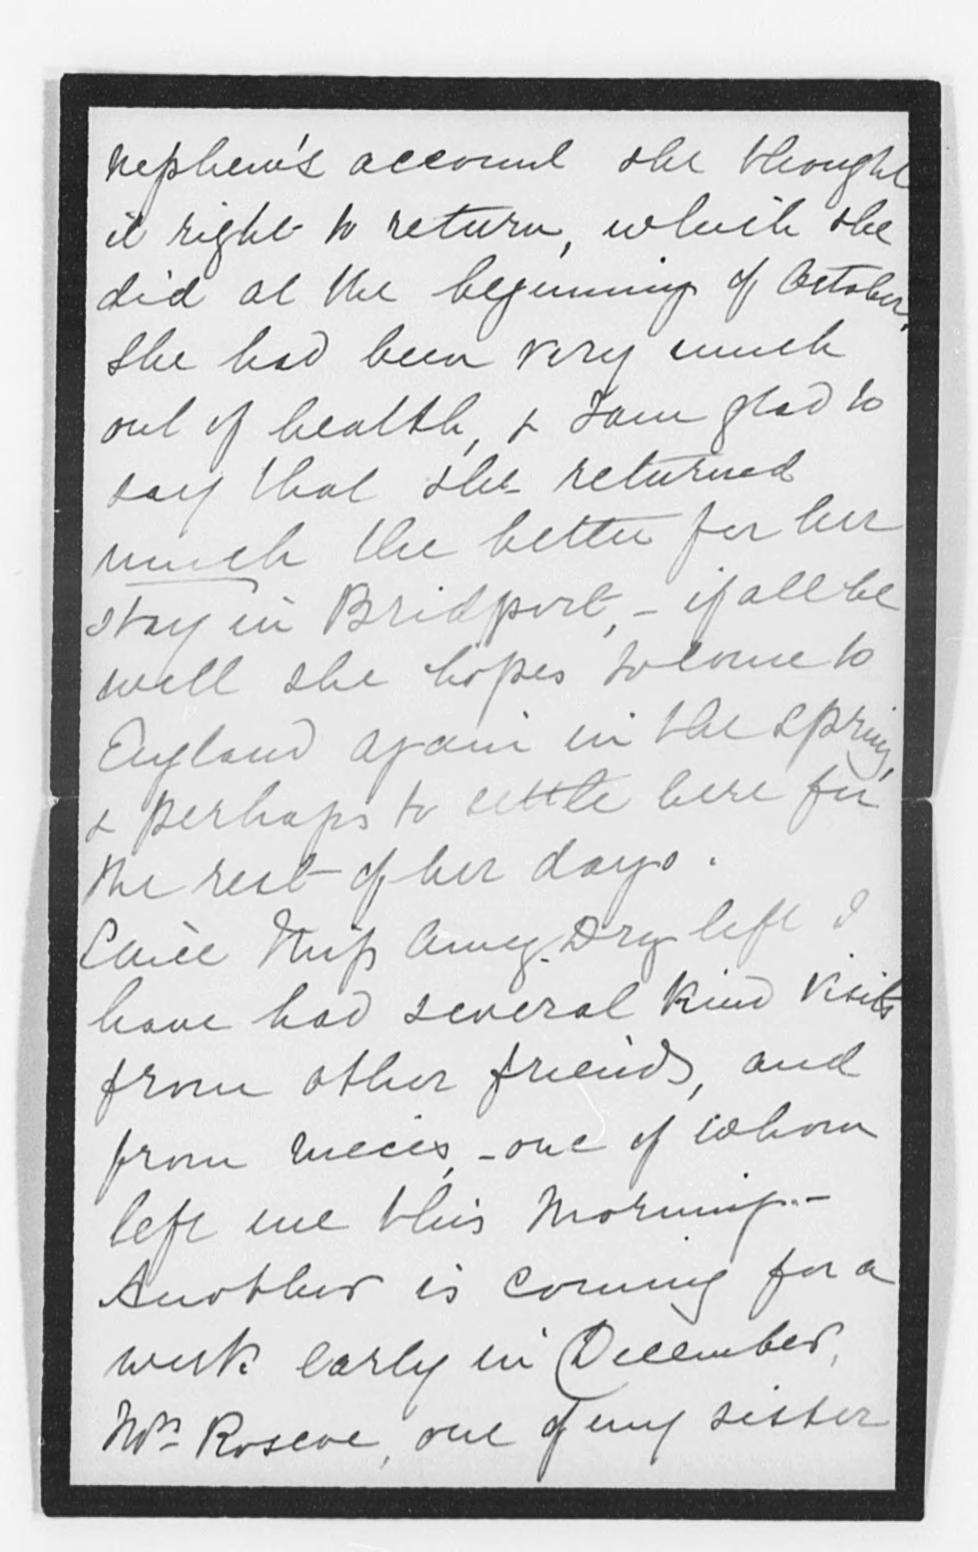 nephew's account she thought
it right to return, which she
did at the beginning of October,
She had been very much
out of health, & I am glad to
say that she returned
much the better for her
stay in Bridport, - if all be
well she hopes to come to
England again in the spring,
& perhaps to settle here for
the rest of her days.
Since Miss Amey Dry left I
have had several kind visits
from other friends, and
from nieces, - one of whom
left me this morning. -
Another is coming for a
week early in December,
Mrs Roscoe, one of my sister